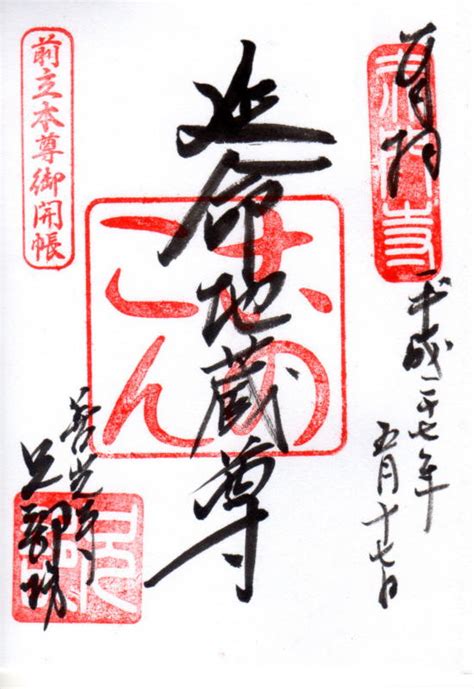 奉拝
平成二十七年
五月十七日
延命地蔵尊
前立本尊御開帳
善光寺
兄部坊